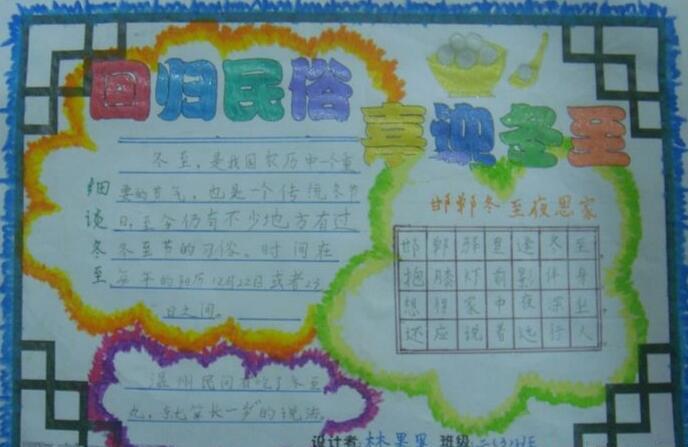 回归民俗
喜迎冬至
细谈冬至
冬至，是我国农历中一个重
要的节气，也是一个传统冬节
日，至今仍有不少地方有过
冬至节的习俗。时间在
每年的阳历12月22日或者23
日之间。
邯郸冬至夜思家
邯郸驿里逢冬至。
抱膝灯前影伴身
想得家中夜深坐。
还应说着远行人
温州民间有吃了冬至
丸，就算长一岁"的说法。
设计者:林里里 班级: